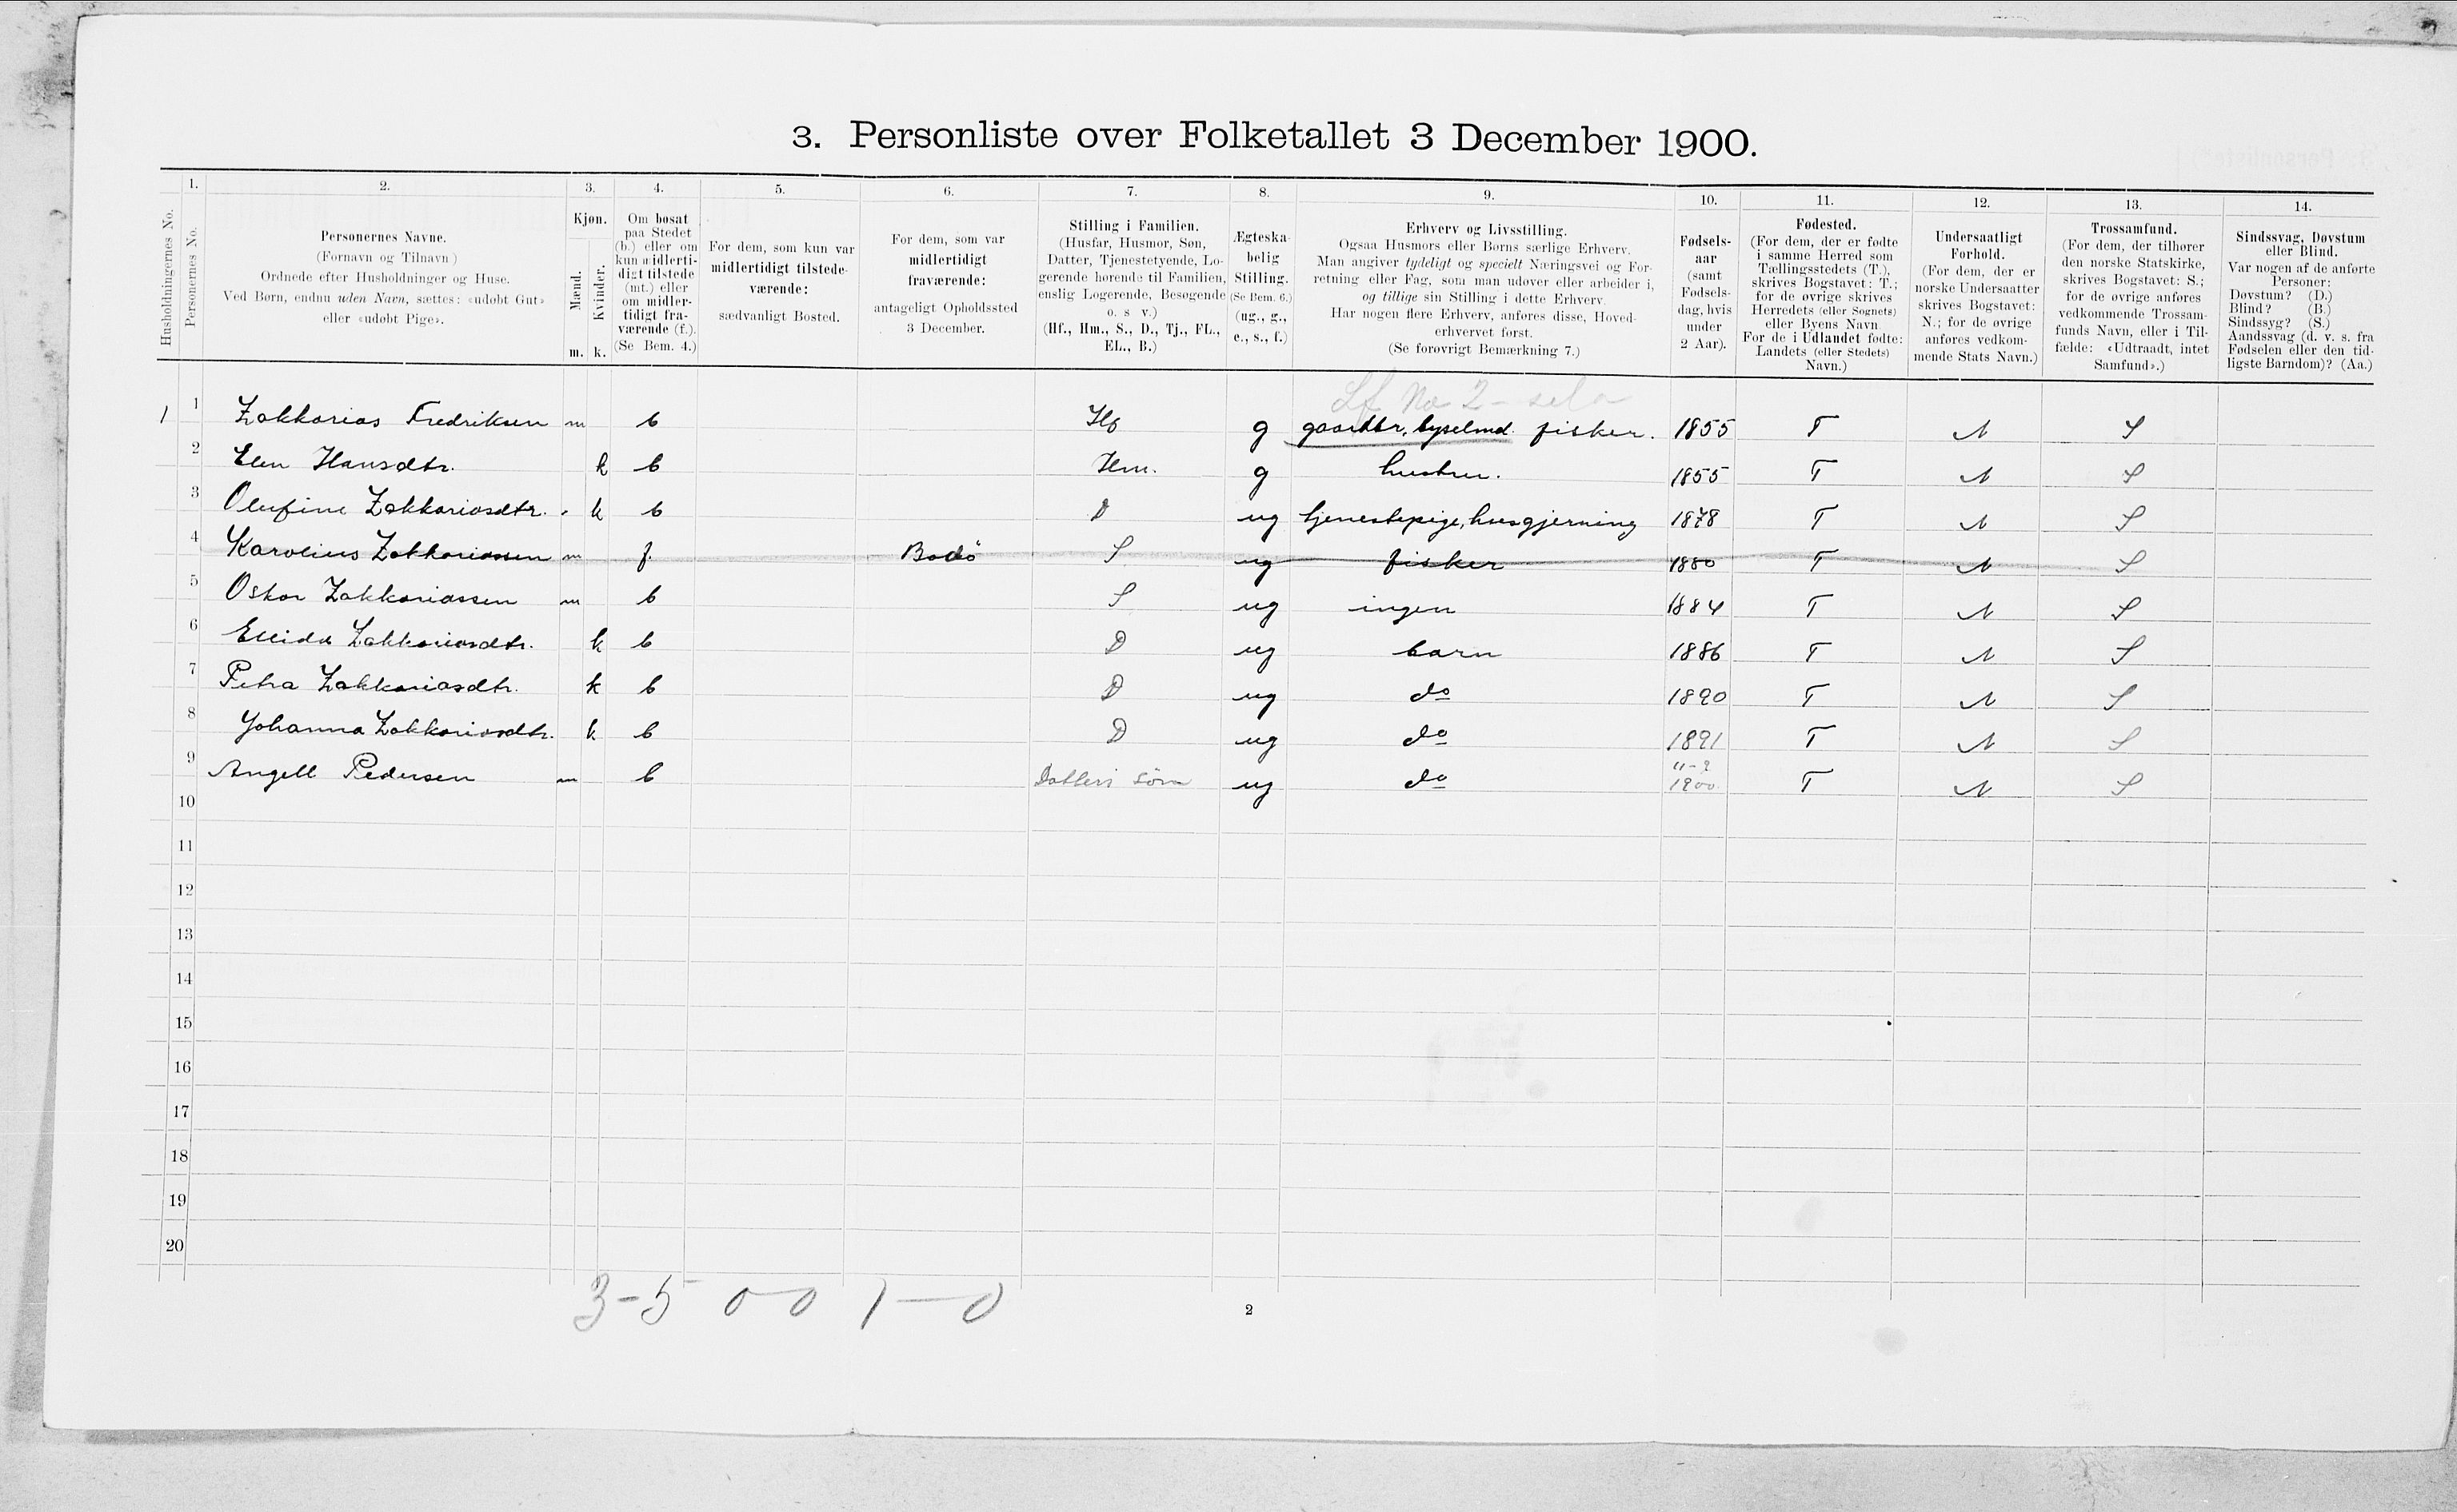 3. Personliste over Folketallet 3 December 1900.
Husholdningernes No.
1.
Personernes No.
2.
Personernes Navne.
(Fornavn og Tilnavn)
Ordnede efter Husholdninger og Huse.
Ved Børn, endnu uden Navn, sættes: «udøbt Gut»
eller «udøbt Pige».
3.
Kjøn.
Mænd.
Kvinder.
m. k.
4.
Om bosat
paa Stedet
(b.) eller om
kun midlerti-
digt tilstede
(mt.) eller
om midler-
tidigt fra-
værende (f.).
(Se Bem. 4.)
5.
For dem, som kun var
midlertidigt tilstede-
værende:
sædvanligt Bosted.
6.
For dem, som var
midlertidigt
fraværende:
antageligt Opholdssted
3 December.
7.
Stilling i Familien.
(Husfar, Husmor, Søn,
Datter, Tjenestetyende, Lo-
gerende hørende til Familien,
enslig Logerende, Besøgende
o. s v.)
(Hf., Hm., S., D., Tj., FL.,
EL., B.)
8.
Ægteska-
belig
Stilling.
(Se Bem. 6.)
(ug., g.,
e., s., f.)
9.
Erhverv og Livsstilling.
Ogsaa Husmors eller Børns særlige Erhverv.
Man angiver tydeligt og specielt Næringsvei og For-
retning eller Fag, som man udøver eller arbeider i,
og tillige sin Stilling i dette Erhverv.
Har nogen flere Erhverv, anføres disse, Hoved-
erhvervet først.
(Se forøvrigt Bemærkning 7.)
10.
Fødsels-
aar
(samt
Fødsels-
dag, hvis
under
2 Aar).
11.
Fødested.
(For dem, der er fødte
i samme Herred som
Tællingsstedets (T.),
skrives Bogstavet: T.;
for de øvrige skrives
Herredets (eller Sognets)
eller Byens Navn
For de i Udlandet fødte:
Landets (eller Stedets)
Navn.)
12.
Undersaatligt
Forhold.
(For dem, der er
norske Undersaatter
skrives Bogstavet:
N.; for de øvrige
anføres vedkom-
mende Stats Navn.)
13.
Trossamfund.
(For dem, der tilhører
den norske Statskirke,
skrives Bogstavet: S.;
for de øvrige anføres
vedkommende Trossam-
funds Navn, eller i Til-
fælde: «Udtraadt, intet
Samfund».)
14.
Sindssvag, Døvstum
eller Blind.
Var nogen af de anførte
Personer:
Døvstum? (D.)
Blind? (B.)
Sindssyg? (S.)
Aandssvag (d. v. s. fra
Fødselen eller den tid-
ligste Barndom)? (Aa.)
Lf No 2 - sela
1 1 Zakkarias Fredriksen m b Hf g gaardbr, lyselmd. fisker. 1855 T N S
2 Elen Hansdtr. k b Hm. g hustru. 1855 T N S
3 Olufine Zakkariasdtr. k b D ug tjenestepige, husgjerning 1878 T N S
4 Karolius Zakkariassen m f. Bodö S ug fisker 1880 T N S
5 Oskar Zakkariassen m b S ug ingen 1884 T N S
6 Ellida Zakkariasdtr. k b D ug barn 1886 T N S
7 Petra Zakkariasdtr. k b D ug do 1890 T N S
8 Johanna Zakkariasdtr. k b D ug do 1891 T N S
9 Angell Pedersen m b Datters sön ug do 11-9 1900 T N S
10
11
12
13
14
15
16
17
18
19
20
3-5 0-0 1-0
2